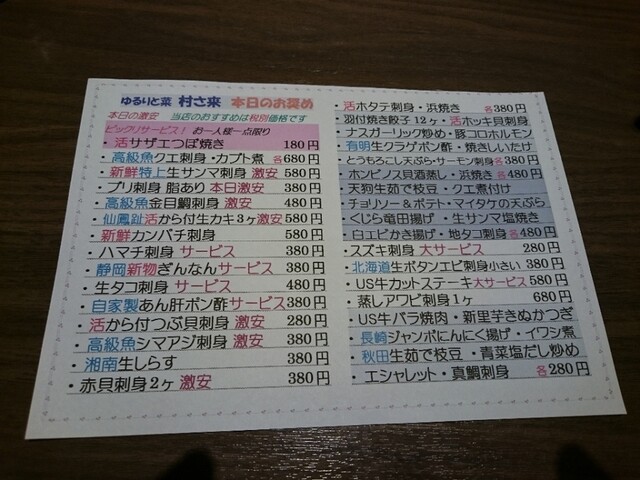 ゆるりと菜 村さ来 本日のお奨め
本日の激安 当店のおすすめは税別価格です
ビックリサービス! お一人様一点限り
・活サザエつぼ焼き 180円
・高級魚クエ刺身・カブト煮 各680円
・新鮮特上生サンマ刺身 激安 580円
・ブリ刺身 脂あり 本日激安 380円
・高級魚金目鯛刺身 激安 480円
・仙鳳趾活から付生カキ3ヶ激安 580円
・新鮮カンパチ刺身 580円
・ハマチ刺身 サービス 380円
・静岡新物ぎんなんサービス 380円
・生タコ刺身 サービス 480円
・自家製あん肝ポン酢サービス 380円
・活から付つぶ貝刺身 激安 280円
・高級魚シマアジ刺身 激安 380円
・湘南生しらす 380円
・赤貝刺身2ヶ 激安 380円
・活ホタテ刺身・浜焼き 各380円
・羽付焼き餃子12ヶ・活ホッキ貝刺身
・ナスガーリック炒め・豚コロホルモン
・有明生クラゲポン酢・焼きしいたけ
・とうもろこし天ぷら・サーモン刺身 各380円
・ホンビノス貝酒蒸し・浜焼き 各480円
・天狗生茹で枝豆・クエ煮付け
・チョリソー&ポテト・マイタケの天ぷら
・くじら竜田揚げ・生サンマ塩焼き
・白エビかき揚げ・地タコ刺身 各480円
・スズキ刺身 大サービス 280円
・北海道生ボタンエビ刺身小さい 380円
・US牛カットステーキ大サービス 580円
・蒸しアワビ刺身1ヶ 680円
・US牛バラ焼肉・新里芋きぬかつぎ
・長崎ジャンボにんにく揚げ・イワシ煮
・秋田生茹で枝豆・青菜塩だし炒め
・エシャレット・真鯛刺身 各280円